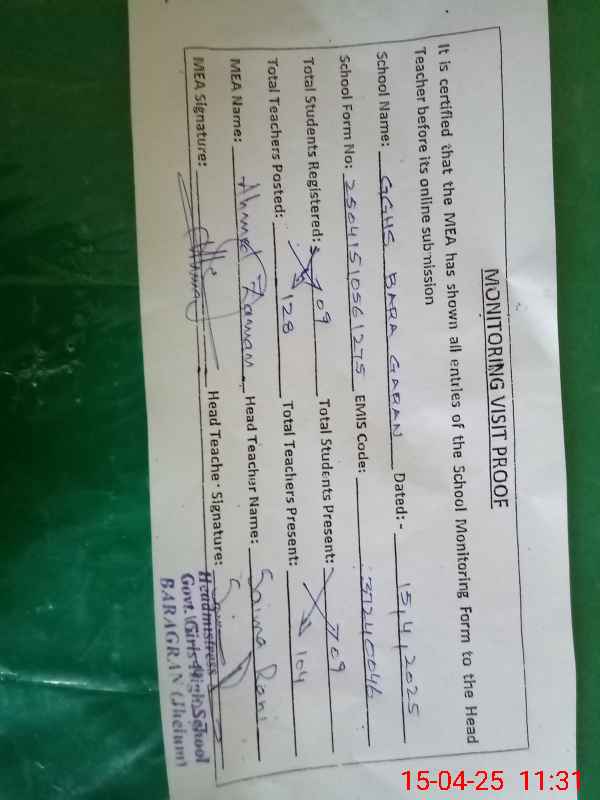 MONITORING VISIT PROOF
It is certified that the MEA has shown all entries of the School Monitoring Form to the Head
Teacher before its online submission
School Name: GGHS BARA GARAN Dated:- 15,4,2025
School Form No: 25041510561275 EMIS Code: 37240046
Total Students Registered: 09 Total Students Present: 09
128 104
Total Teachers Posted: Total Teachers Present:
MEA Name: Ahmed Zaman Head Teacher Name: Saima Rani
MEA Signature: Head Teacher Signature:
Headmistress
Govt. Girls High School
BARAGRAN (Jhelum)
15-04-25 11:31